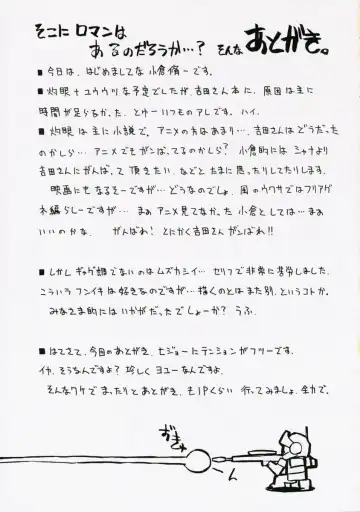 そこにロマンは
あるのだろうか…? そんな あとがき。
■今日は、はじめましてな小倉脩一です。
■灼眼+ユウウツな予定でしたが、吉田さん本に、原因は主に
時間が足らなかった、とゆーいつものアレです。ハイ。
■灼眼は主に小説で、アニメの方はあまり…、吉田さんはどうだった
のかしら… アニメでもガンばってるのかしら? 小倉的にはシャナより
吉田さんにがんばって頂きたい、などとたまに思ったりしてたりします。
映画にもなるそーですが…どうなのでしょ、風のウワサではフリアグ
ネ編らしーですが… まぁアニメ見てなかった小倉としては…まぁ
いいのかな、 がんばれ! とにかく吉田さんガンばれ!!
■しかしギャグ調でないのはムズカシイ… セリフで非常に苦労しました。
こういうフンイキは好きなのですが… 描くのとはまた別、というコトか。
みなさま的にはいかがだったでしょーか? うふ。
■はてさて、今回のあとがき、七ジョーにテンションがフリーです。
イヤ、そうなんですよ? 珍しくヨユーなんですよ。
そんなワケで まったりとあとがき、も1Pくらい 行ってみましょ、全力で。
おきゅ
ーん